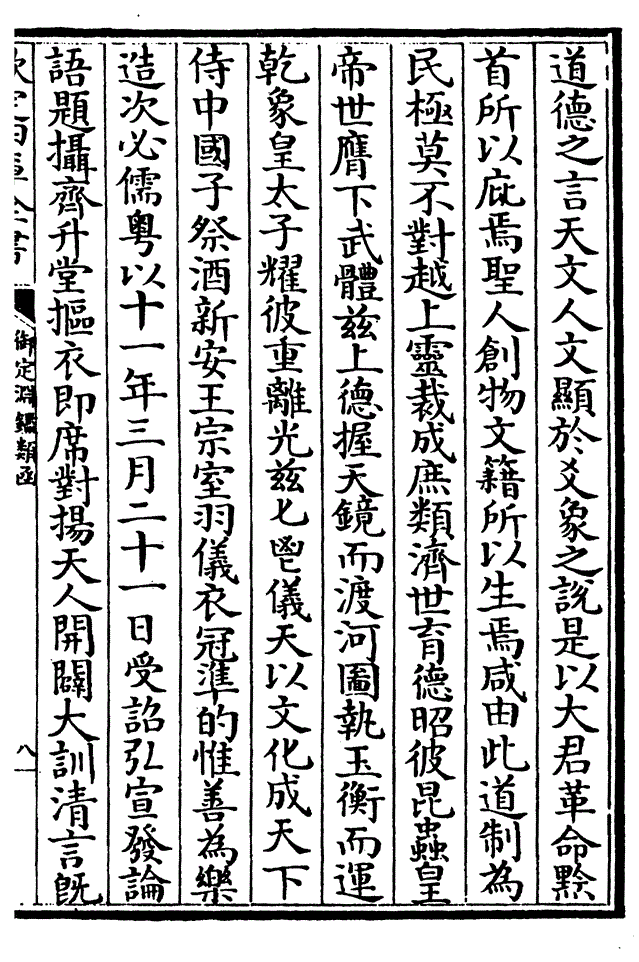 道德之言天文人文顯於爻象之說是以大君革命黔
首所以庇焉聖人創物文籍所以生焉咸由此道制為
民極莫不對越上靈裁成庶類濟世育德昭彼昆蟲皇
帝世膺下武體茲上德握天鏡而渡河圖執玉衡而運
乾象皇太子耀彼重離光茲匕鬯儀天以文化成天下
侍中國子祭酒新安王宗室羽儀衣冠準的惟善為樂
造次必儒粵以十一年三月二十一日受詔弘宣發論
語題攝齊升堂摳衣即席對揚天人開闢大訓清言既
欽定四庫全書
御定淵鑑類函
八